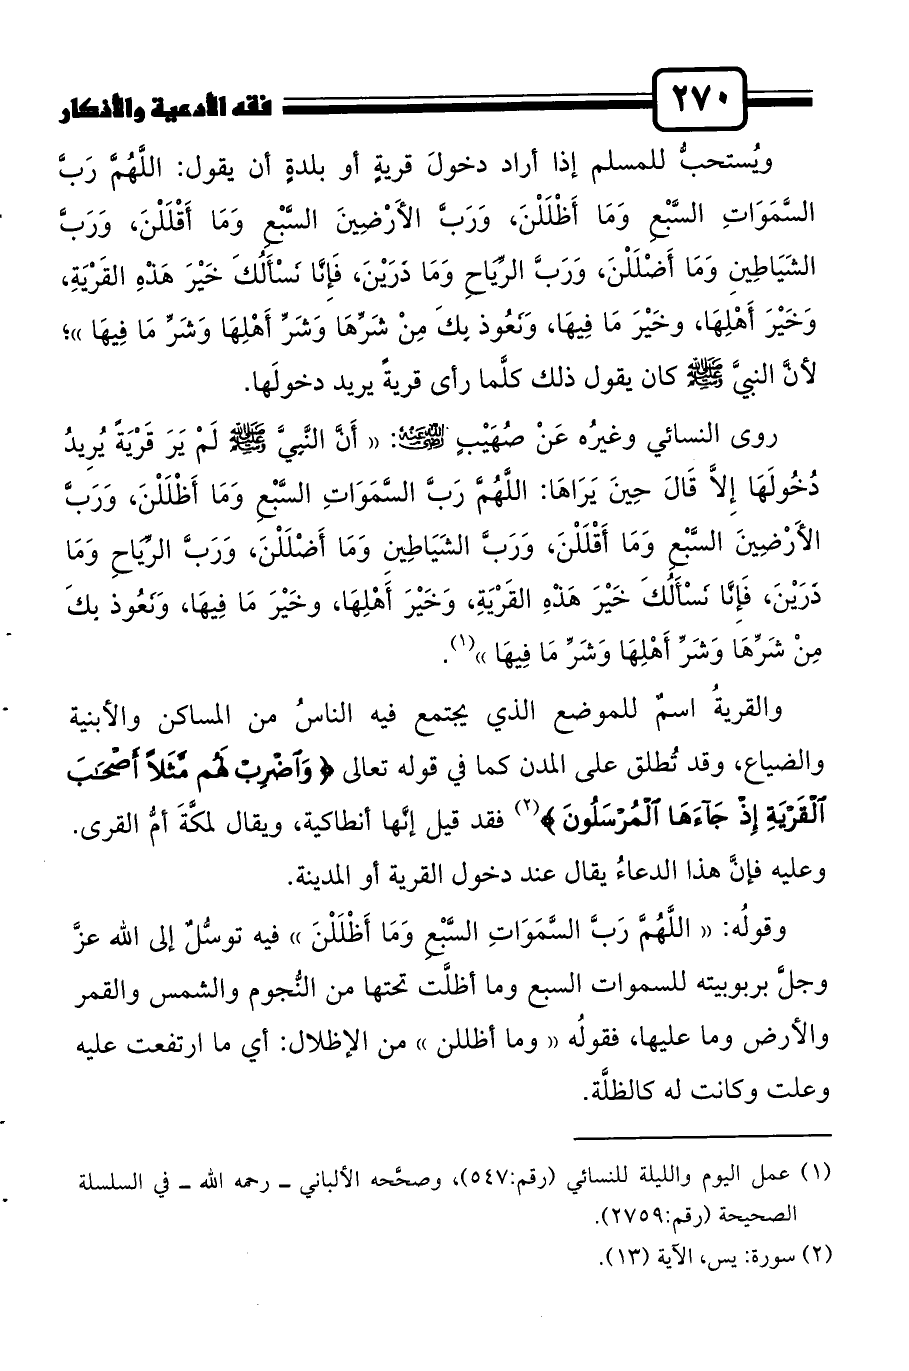 ٢٧٠ فقه الأدعية والأذكار
ويُستحبُّ للمسلم إذا أراد دخولَ قريةٍ أو بلدةٍ أن يقول: اللَّهُمَّ رَبَّ
السَّمَوَاتِ السَّبْعِ وَمَا أَظْلَلْنَ، وَرَبَّ الأَرْضِينَ السَّبْعِ وَمَا أَقْلَلْنَ، وَرَبَّ
الشَيَاطِينِ وَمَا أَضْلَلْنَ، وَرَبَّ الرِّيَاحِ وَمَا ذَرَيْنَ، فَإِنَّا نَسْأَلُكَ خَيْرَ هَذْهِ القَرْيَةِ،
وَخَيْرَ أَهْلِهَا، وخَيْرَ مَا فِيهَا، وَنَعُوذ بِكَ مِنْ شَرِّهَا وَشَرِّ أَهْلِهَا وَشَرِّ مَا فِيهَا »؛
لأنَّ النبيَّ ﷺ كان يقول ذلك كلَّما رأى قريةً يريد دخولَها.
روى النسائي وغيرُه عَنْ صُهَيْبٍ رضي الله عنه: « أَنَّ النَّبِيَّ ﷺ لَمْ يَرَ قَرْيَةً يُرِيدُ
دُخُولَهَا إِلاَّ قَالَ حِينَ يَرَاهَا: اللَّهُمَّ رَبَّ السَّمَوَاتِ السَّبْعِ وَمَا أَظْلَلْنَ، وَرَبَّ
الأَرْضِينَ السَّبْعِ وَمَا أَقْلَلْنَ، وَرَبَّ الشَيَاطِينِ وَمَا أَضْلَلْنَ، وَرَبَّ الرِّيَاحِ وَمَا
ذَرَيْنَ، فَإِنَّا نَسْأَلُكَ خَيْرَ هَذْهِ القَرْيَةِ، وَخَيْرَ أَهْلِهَا، وخَيْرَ مَا فِيهَا، وَنَعُوذ بِكَ
مِنْ شَرِّهَا وَشَرِّ أَهْلِهَا وَشَرِّ مَا فِيهَا »(١).
والقريةُ اسمٌ للموضع الذي يجتمع فيه الناسُ من المساكن والأبنية
والضياع، وقد تُطلق على المدن كما في قوله تعالى ﴿ وَٱضْرِبْ لَهُم مَّثَلاً أَصْحَٰبَ
ٱلْقَرْيَةِ إِذْ جَآءَهَا ٱلْمُرْسَلُونَ ﴾(٢) فقد قيل إنَّها أنطاكية، ويقال لمكَّةَ أمُّ القرى.
وعليه فإنَّ هذا الدعاءُ يقال عند دخول القرية أو المدينة.
وقولُه: « اللَّهُمَّ رَبَّ السَّمَوَاتِ السَّبْعِ وَمَا أَظْلَلْنَ » فيه توسُّلٌ إلى الله عزَّ
وجلَّ بربوبيته للسموات السبع وما أظلَّت تحتها من النُّجوم والشمس والقمر
والأرض وما عليها، فقولُه « وما أظللن » من الإظلال: أي ما ارتفعت عليه
وعلت وكانت له كالظلَّة.
(١) عمل اليوم والليلة للنسائي (رقم:٥٤٧)، وصحَّحه الألباني ــ رحمه الله ــ في السلسلة
الصحيحة (رقم:٢٧٥٩).
(٢) سورة: يس، الآية (١٣).